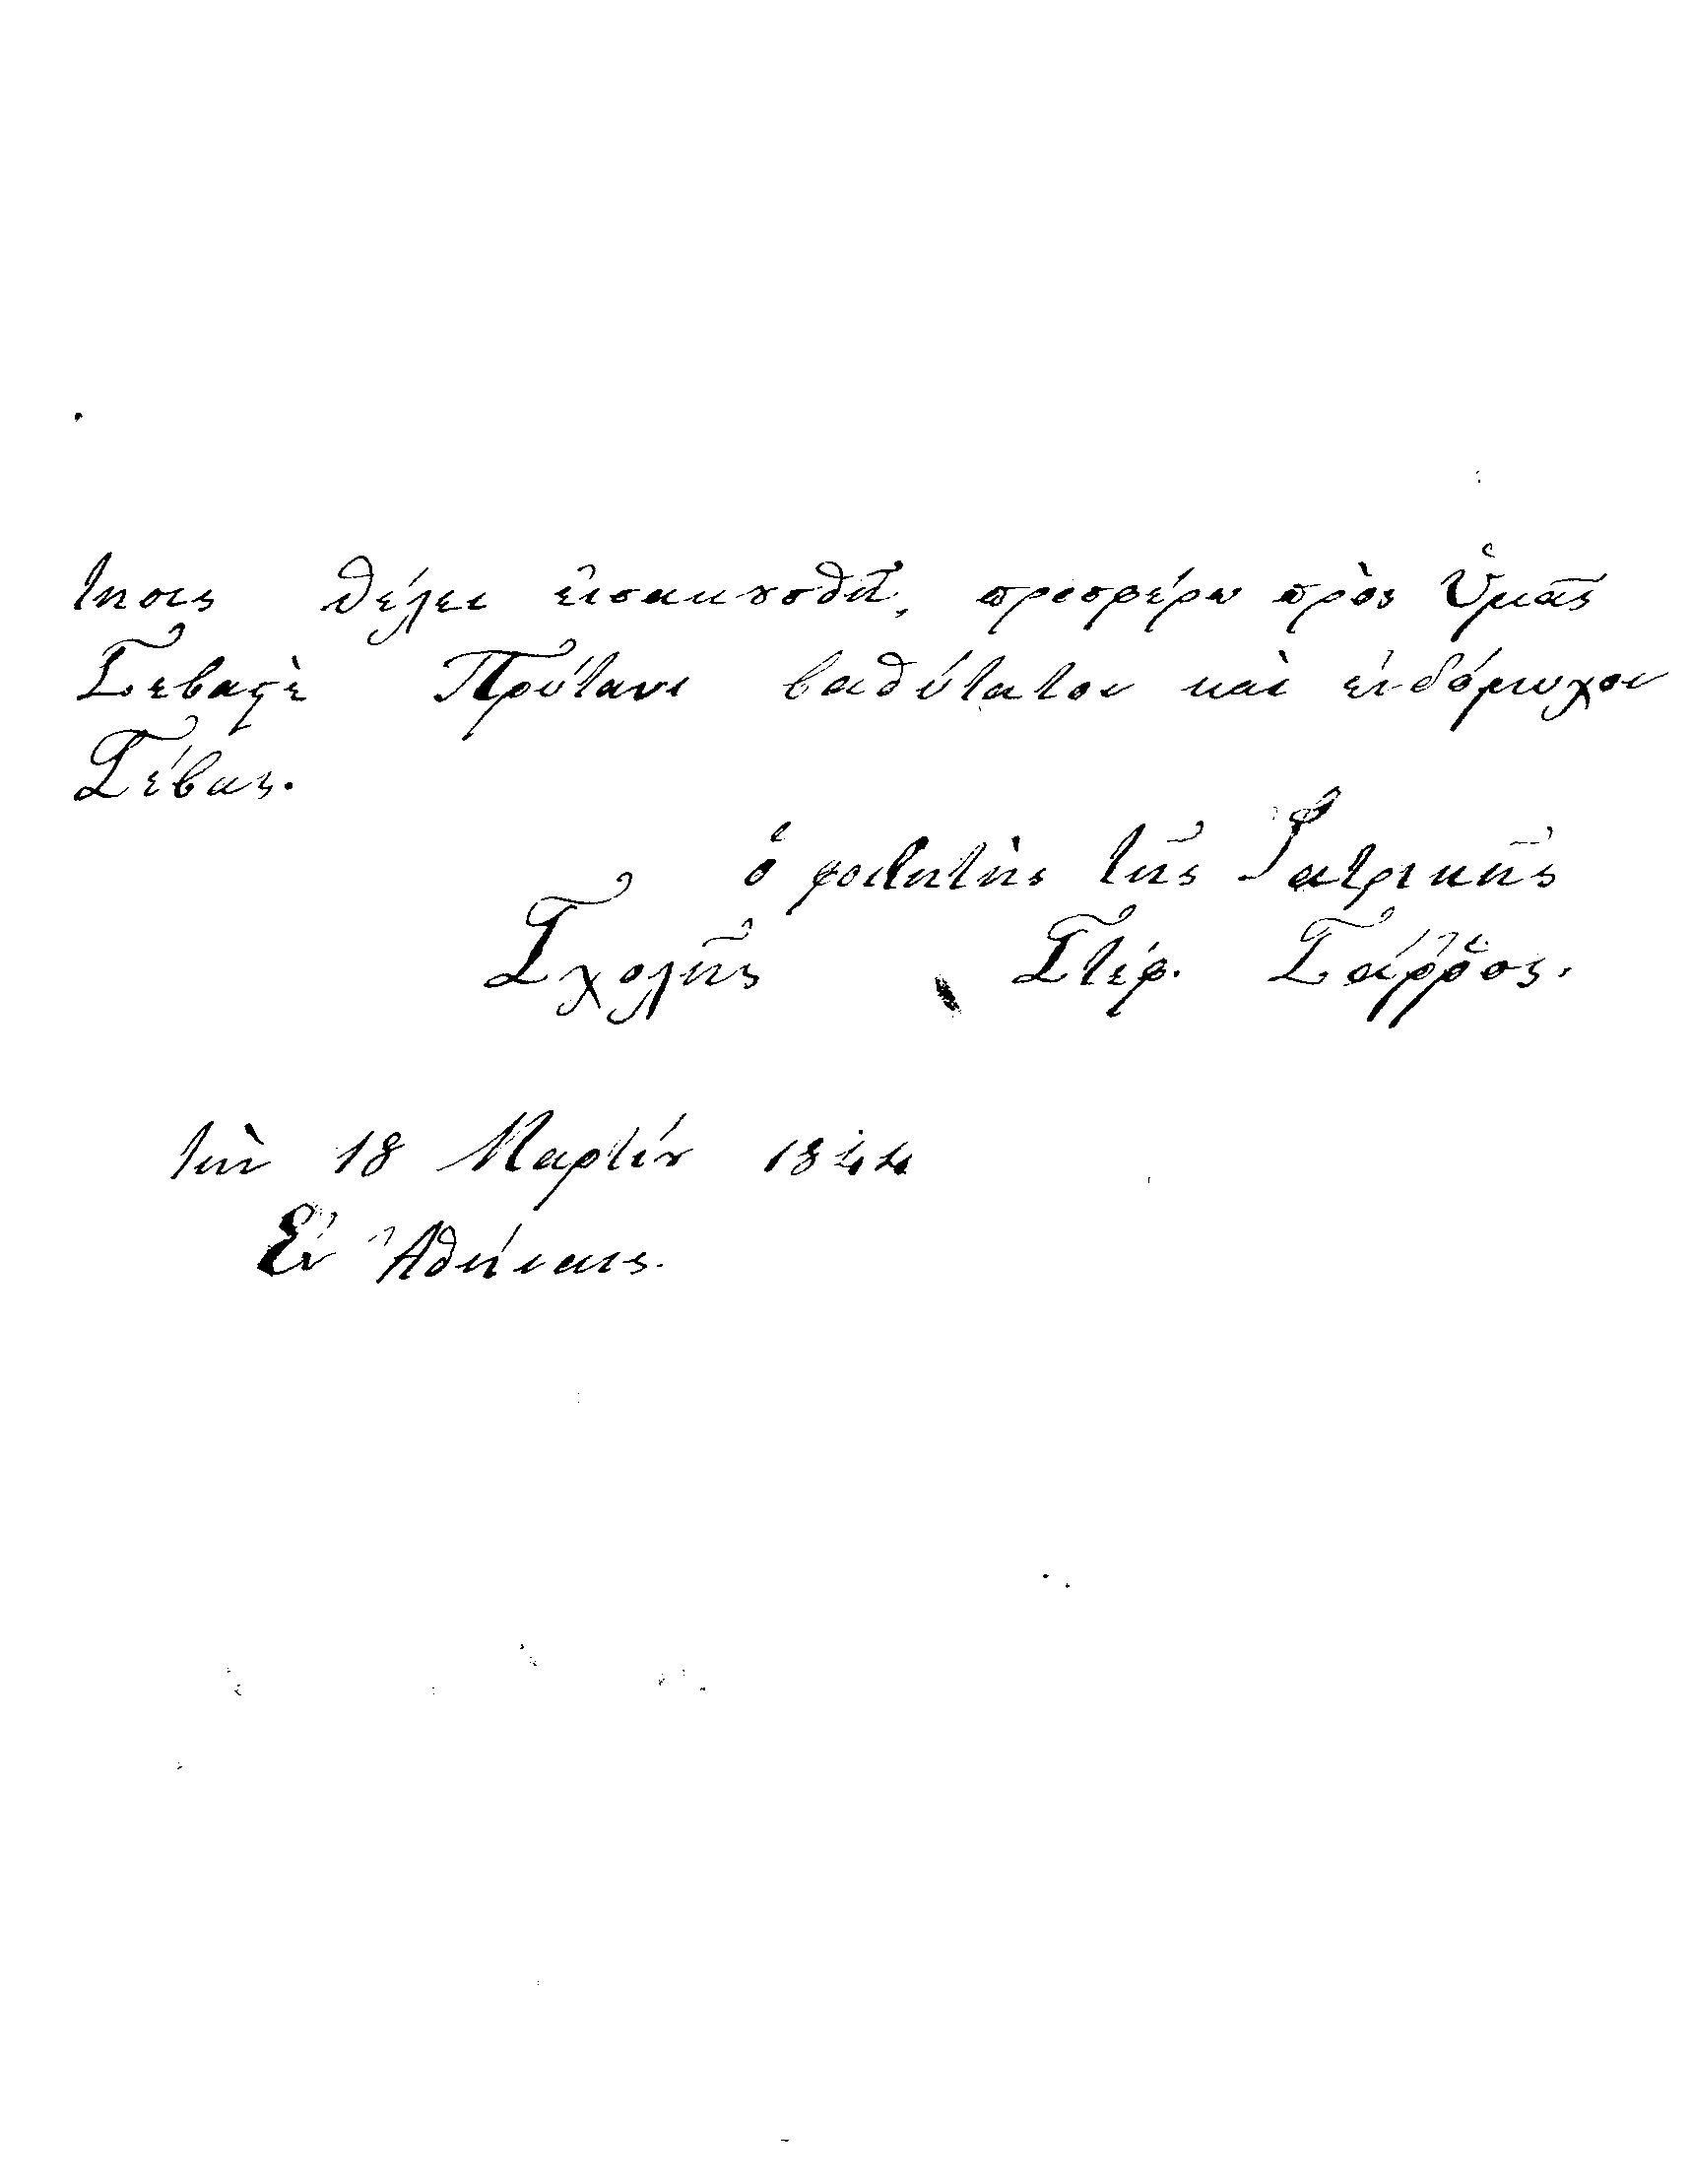 τησις θέλει εἰσακουσθῆ, προσφέρω πρὸς Ὑμᾶς
Σεβαστὲ Πρύτανι βαθύτατον καὶ ἐνδόμυχον
Σέβας.
ὁ φοιτητὴς τῆς Ἰατρικῆς
Σχολῆς Στέφ. Σάῤῥος.
τὴν 18 Μαρτίου 1844
Ἐν Ἀθήναις.